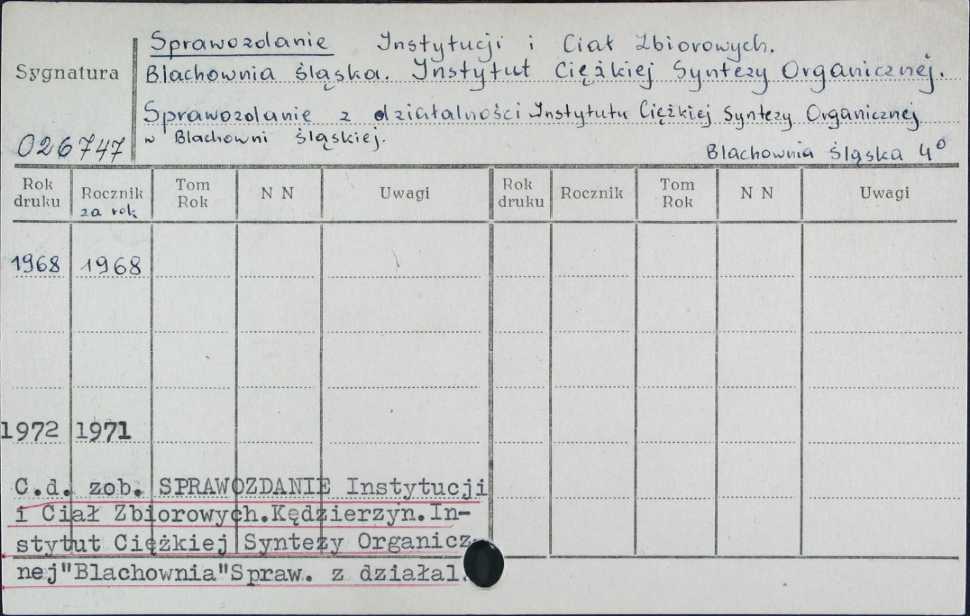 Sprawozdanie Instytucji i Ciał Zbiorowych.
Sygnatura
Blachownia śląska. Instytut Ciężkiej Syntezy Organicznej.
Sprawozdanie z działalności Instytutu Ciężkiej Syntezy Organicznej
w Blachowni śląskiej.
026747
Blachownia śląska 4°
Rok druku Rocznik za rok Tom Rok N N Uwagi Rok druku Rocznik Tom Rok N N Uwagi
1968 1968
1972 1971
C.d. zob. SPRAWOZDANIE Instytucji
i Ciał Zbiorowych.Kędzierzyn.In-
stytut Ciężkiej Syntezy Organicz-
nej"Blachownia"Spraw. z działal.